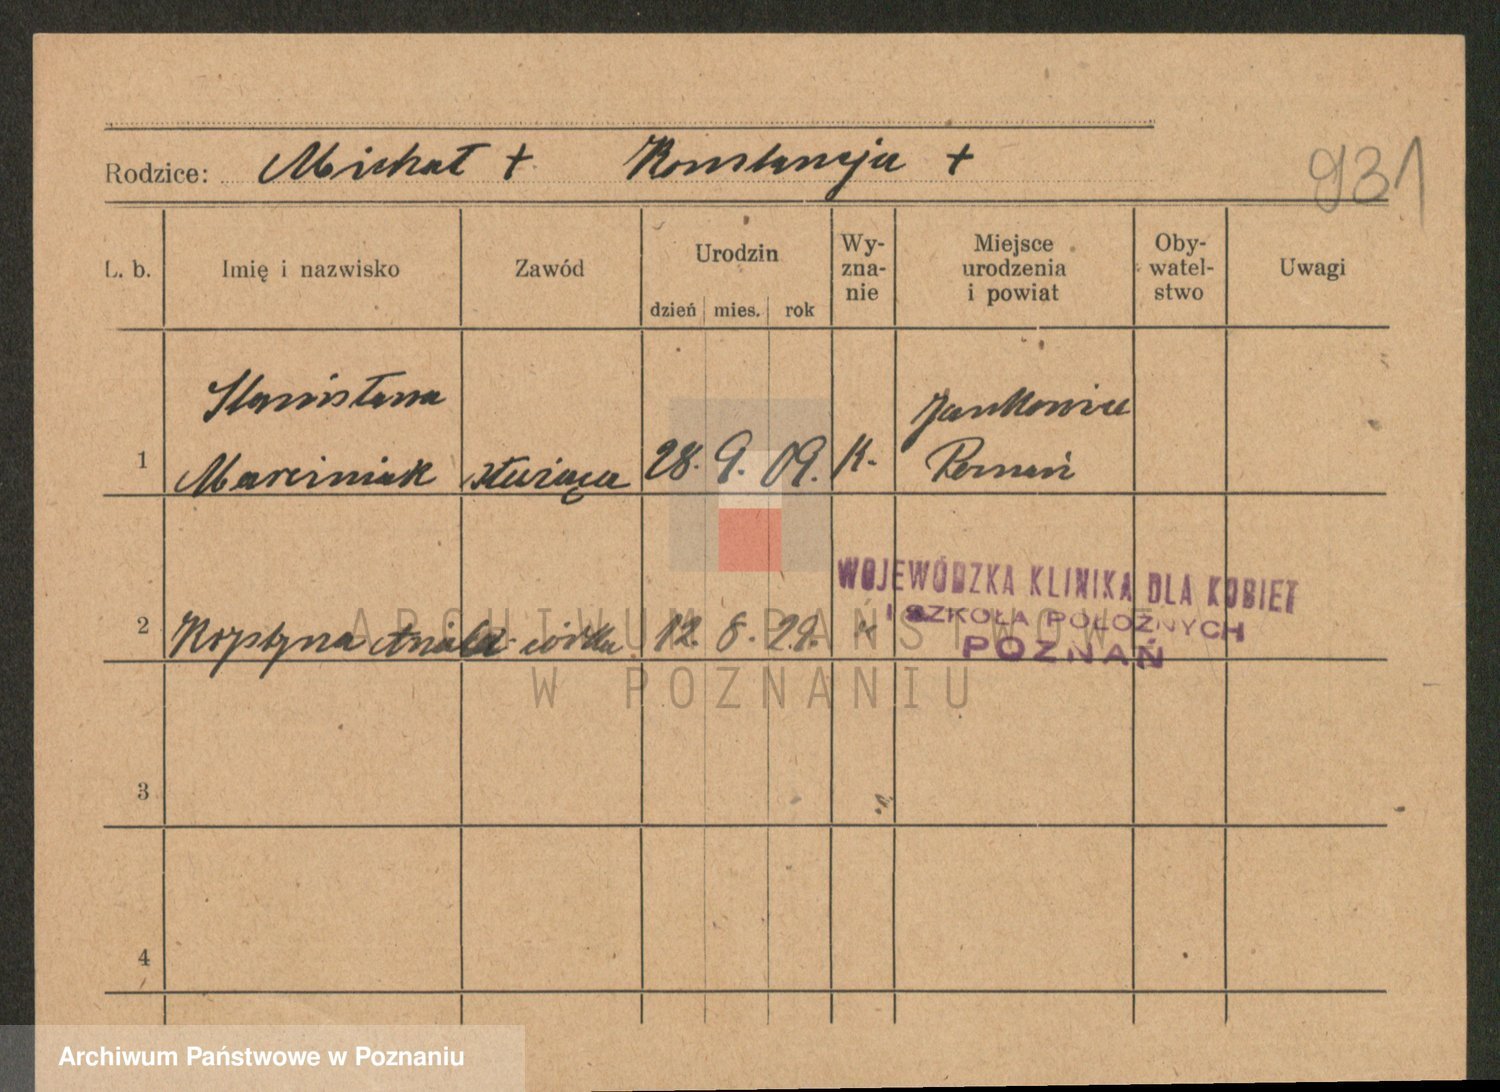 Rodzice: Michał + Konstancja +
931
L. b.
Imię i nazwisko
Zawód
Urodzin
dzień mies. rok
Wy-
zna-
nie
Miejsce
urodzenia
i powiat
Oby-
watel-
stwo
Uwagi
Stanisława
Jankowice
1 Marciniak służąca 28. 9. 09. K. Poznań
WOJEWÓDZKA KLINIKA DLA KOBIET
I SZKOŁA POŁOŻNYCH
POZNAŃ
2 Krystyna córka 12. 8. 29. K
ARCHIWUM PAŃSTWOWE
W POZNANIU
3
4
Archiwum Państwowe w Poznaniu